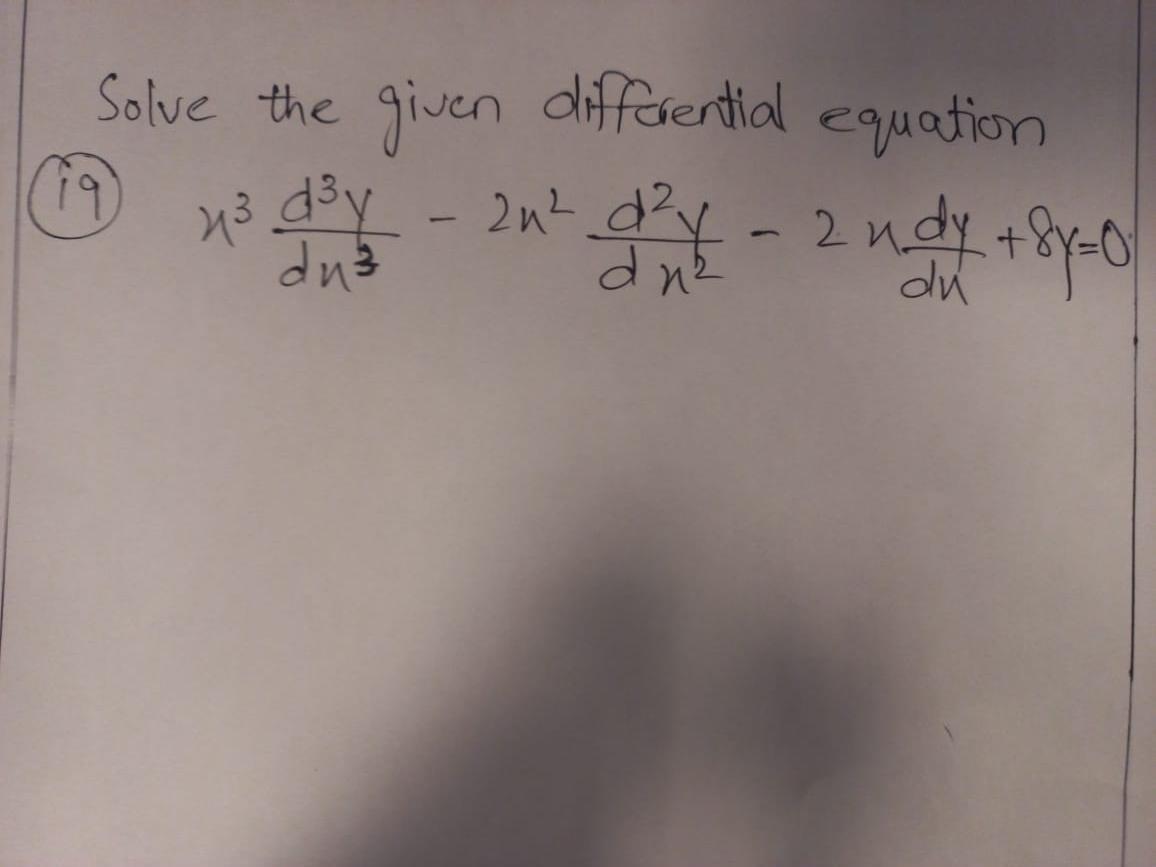 Solve the given differential equation
(19) x³ d³y/dx³ - 2x² d²y/dx² - 2x dy/dx + 8y=0